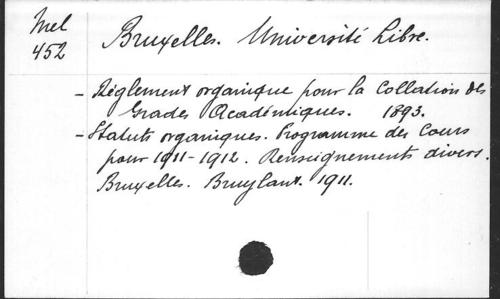 Mel
452
Bruxelles. Université Libre.
- Réglement organique pour la Collation des
Grades Académiques. 1893.
- Statuts organiques. Programme des Cours
pour 1911-1912. Renseignements divers.
Bruxelles. Bruylant. 1911.